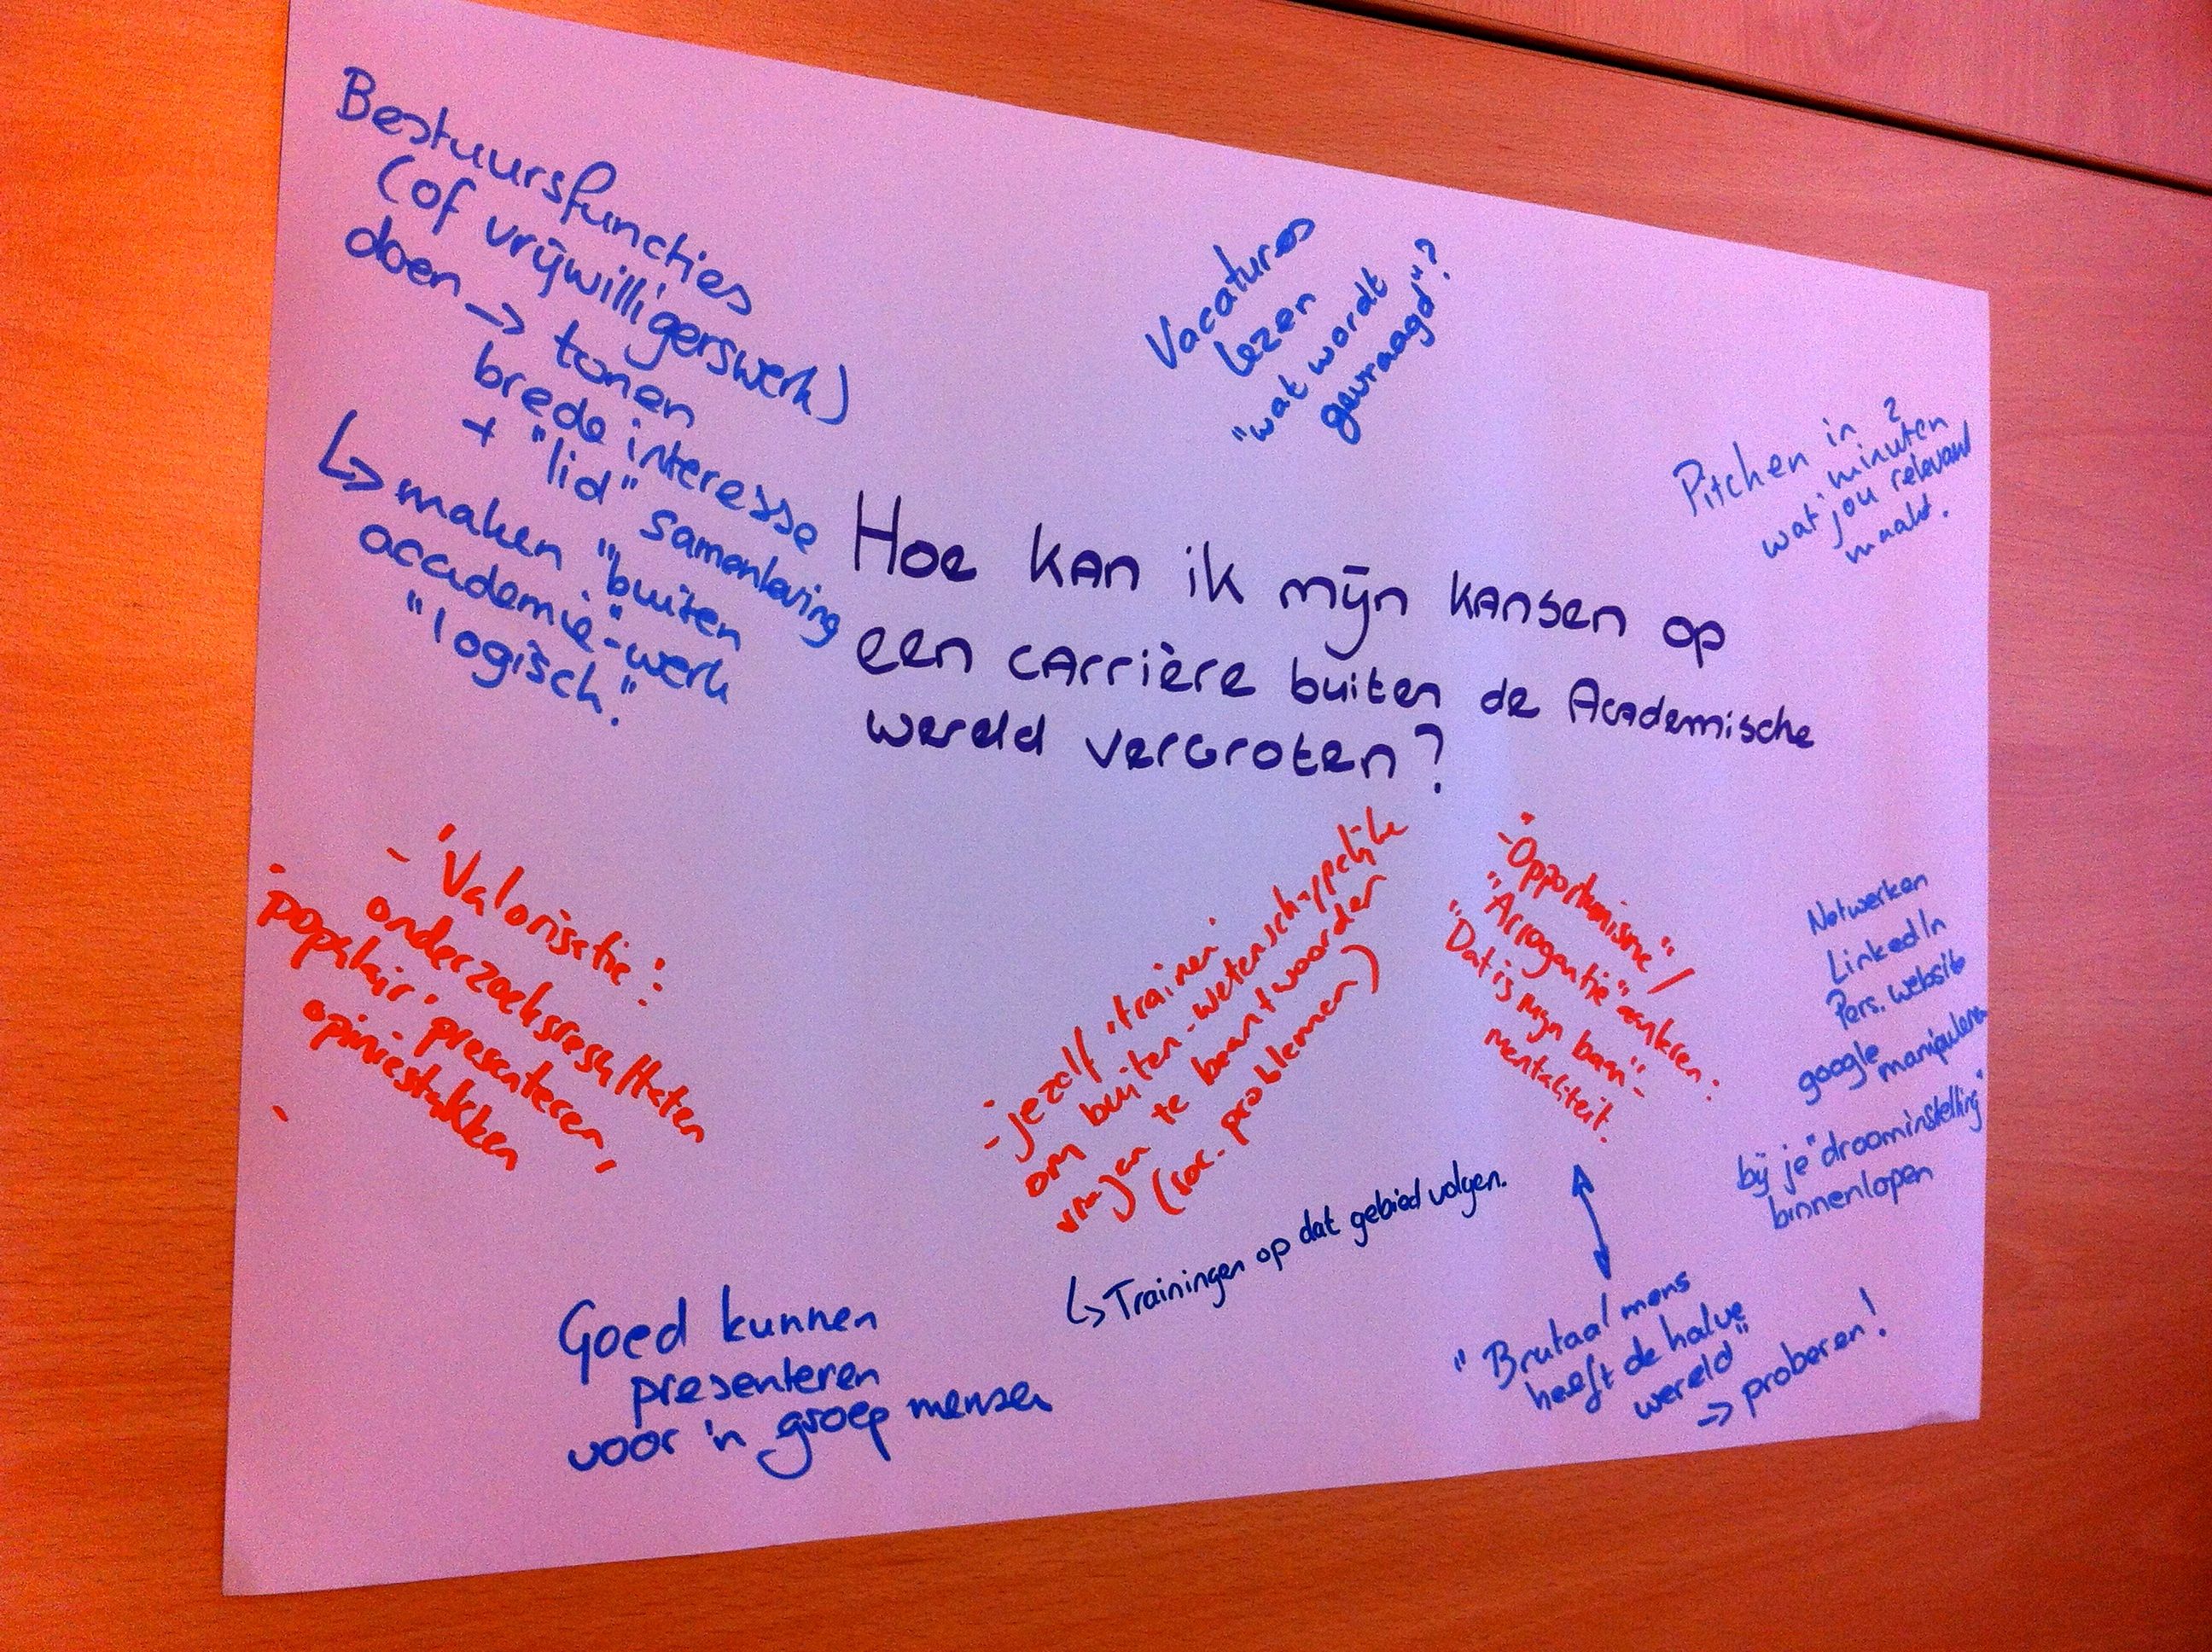 Bestuursfuncties
(of vrijwilligerswerk)
doen → tonen
brede interesse
+ "lid" samenleving
↳ maken "buiten
academie"-werk
"logisch".
Vacatures
lezen
"wat wordt
gevraagd"?
Pitchen in 2
minuten
wat jou relevant
maakt.
Hoe kan ik mijn kansen op
een carrière buiten de Academische
wereld vergroten?
- 'Valorisatie':
onderzoeksresultaten
'populair' presenteren,
opiniestukken
-
- jezelf 'trainen'
om buiten-wetenschappelijke
vragen te beantwoorden
(soc. problemen)
↳ Trainingen op dat gebied volgen.
- "Opportunisme" /
"Arrogantie" aankweken:
"Dat is mijn baan"-
mentaliteit.
Netwerken
LinkedIn
Pers. website
google manipuleren
bij je "droominstelling"
binnenlopen
"Brutaal mens
heeft de halve
wereld"
→ proberen!
Goed kunnen
presenteren
voor 'n groep mensen